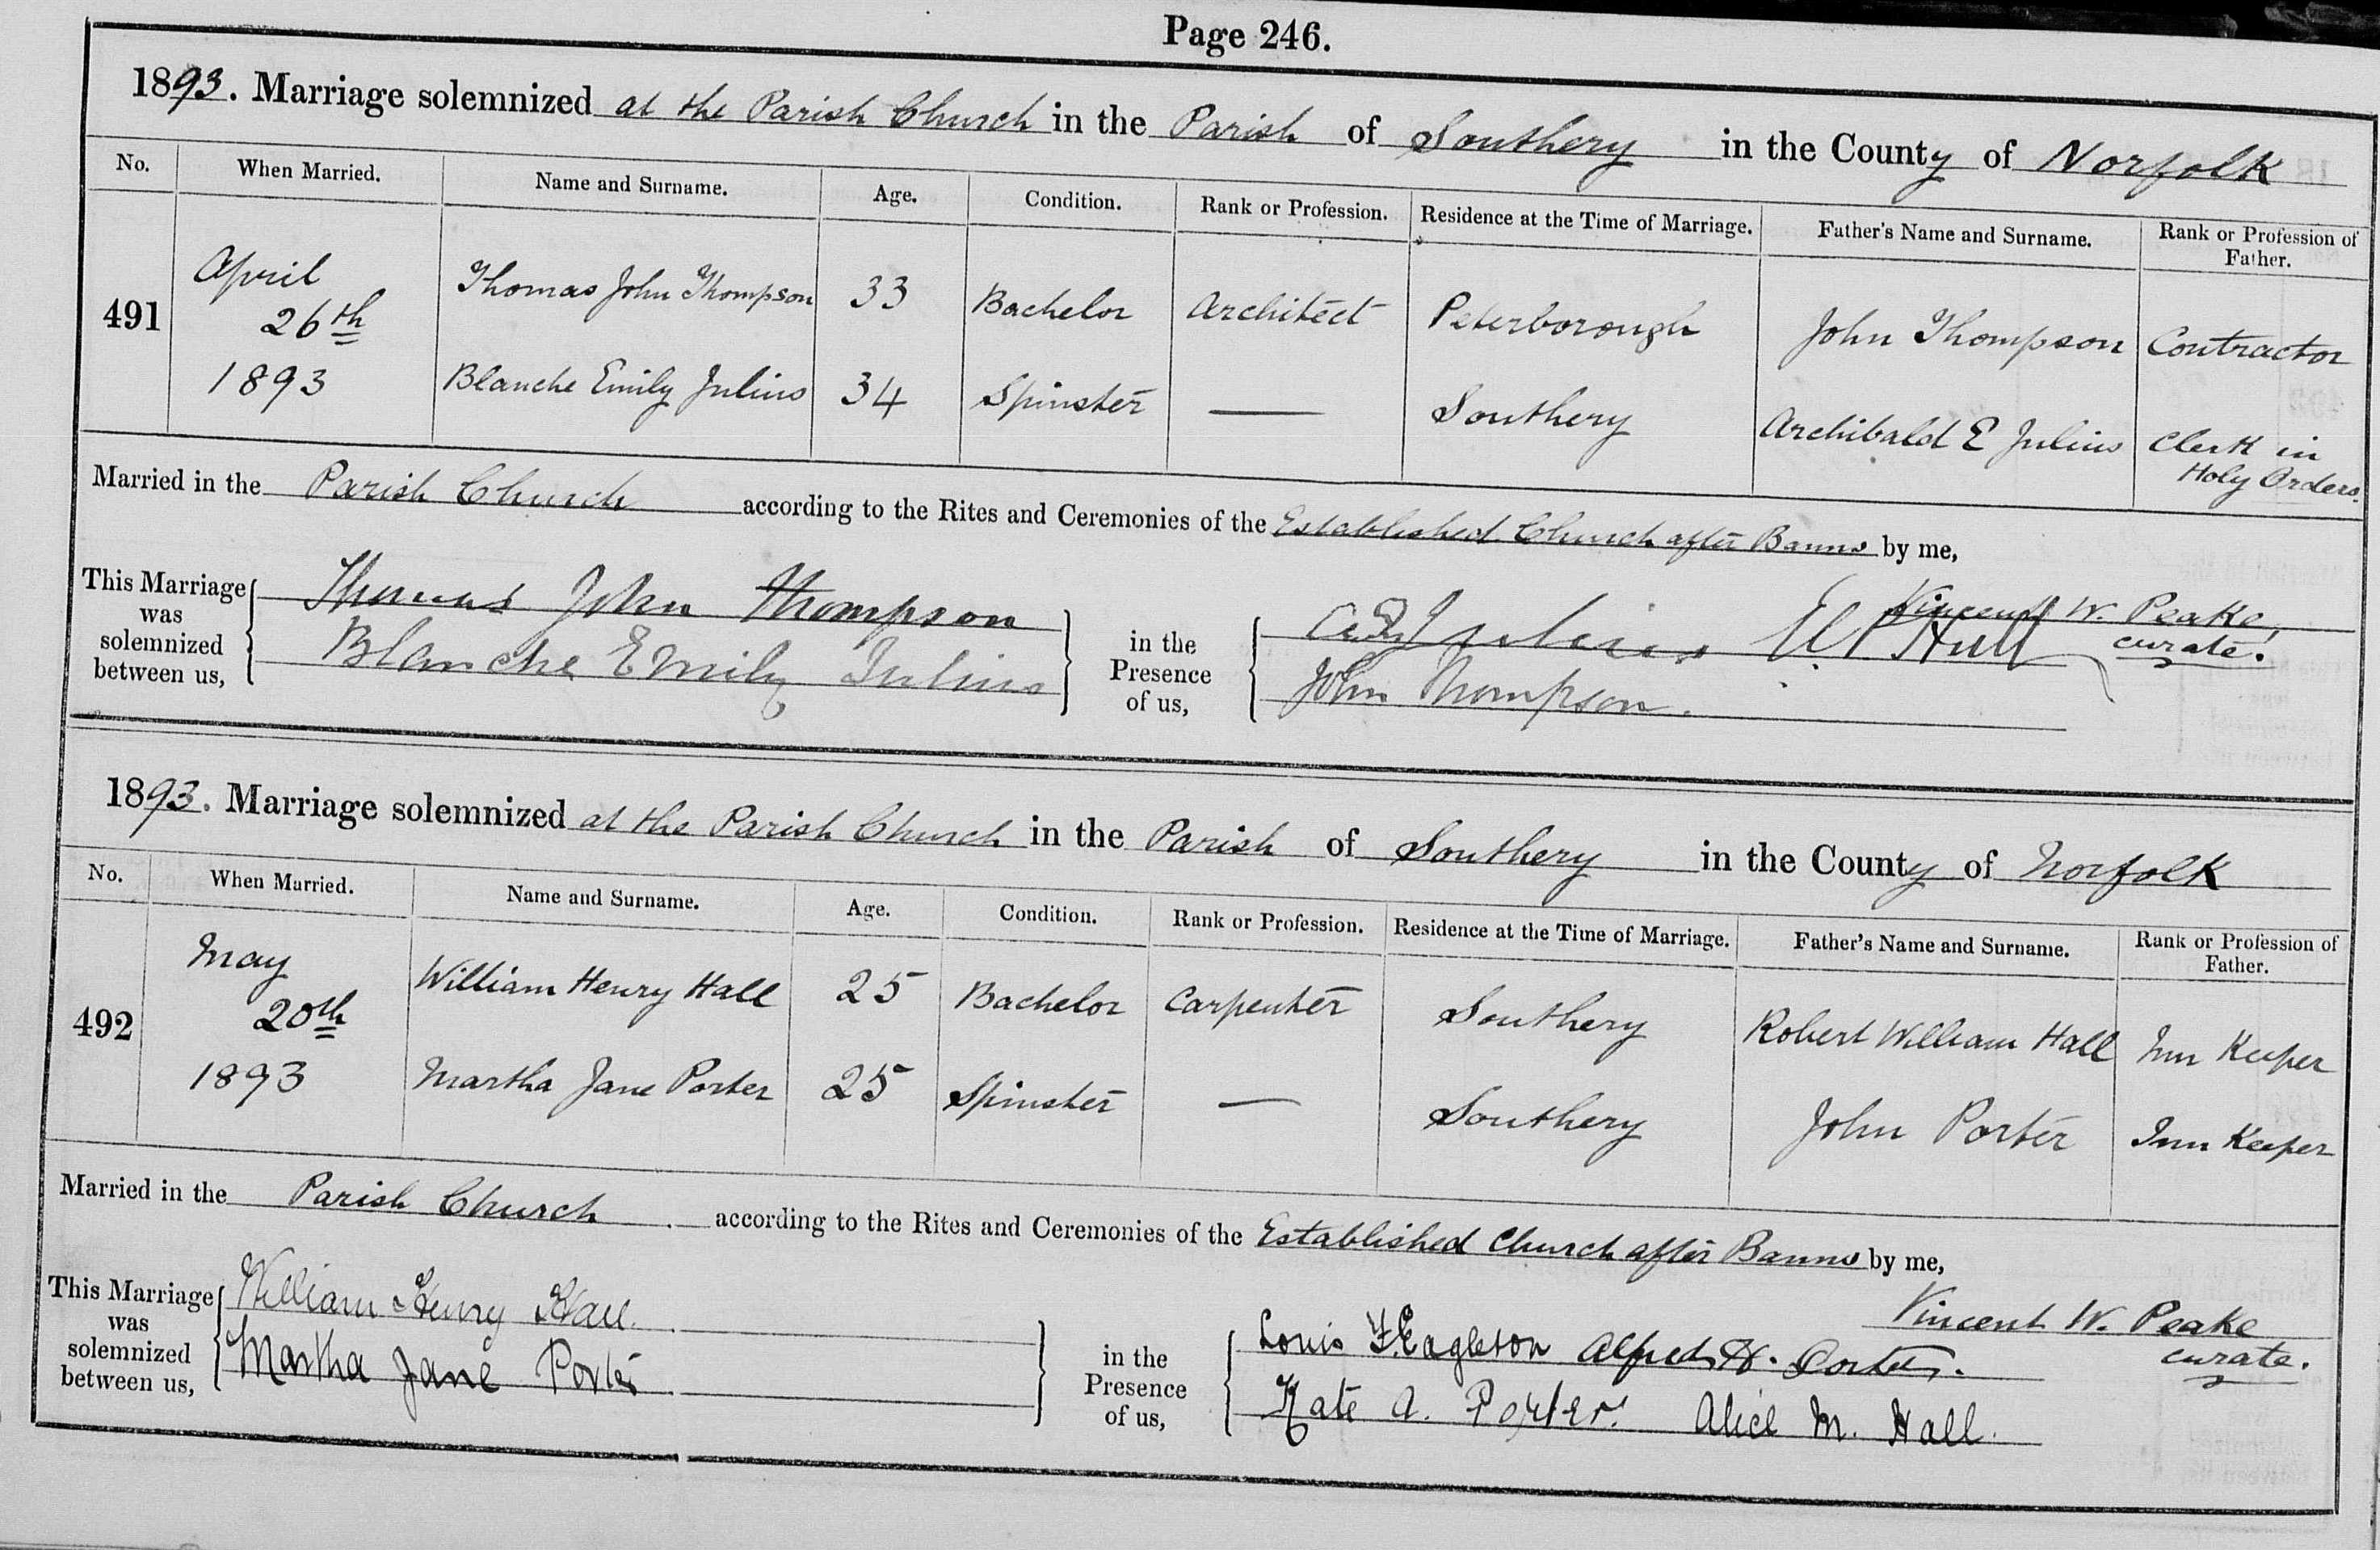 Page 246.
1893. Marriage solemnized at the Parish Church in the Parish of Southery in the County of Norfolk
No. When Married. Name and Surname. Age. Condition. Rank or Profession. Residence at the Time of Marriage. Father's Name and Surname. Rank or Profession of Father.
491 April 26th 1893 Thomas John Thompson 33 Bachelor Architect Peterborough John Thompson Contractor
Blanche Emily Julius 34 Spinster — Southery Archibald E Julius Clerk in Holy Orders.
Married in the Parish Church according to the Rites and Ceremonies of the Established Church after Banns by me,
Vincent W. Peake, curate.
This Marriage was solemnized between us, Thomas John Thompson
Blanche Emily Julius
in the Presence of us, Julius Hull
John Thompson.
1893. Marriage solemnized at the Parish Church in the Parish of Southery in the County of Norfolk
No. When Married. Name and Surname. Age. Condition. Rank or Profession. Residence at the Time of Marriage. Father's Name and Surname. Rank or Profession of Father.
492 May 20th 1893 William Henry Hall 25 Bachelor Carpenter Southery Robert William Hall Inn Keeper
Martha Jane Porter 25 Spinster — Southery John Porter Inn Keeper
Married in the Parish Church according to the Rites and Ceremonies of the Established Church after Banns by me,
Vincent W. Peake curate.
This Marriage was solemnized between us, William Henry Hall.
Martha Jane Porter
in the Presence of us, Louis F. Eagleson Alfred H. Porter.
Kate A. Porter. Alice M. Hall.